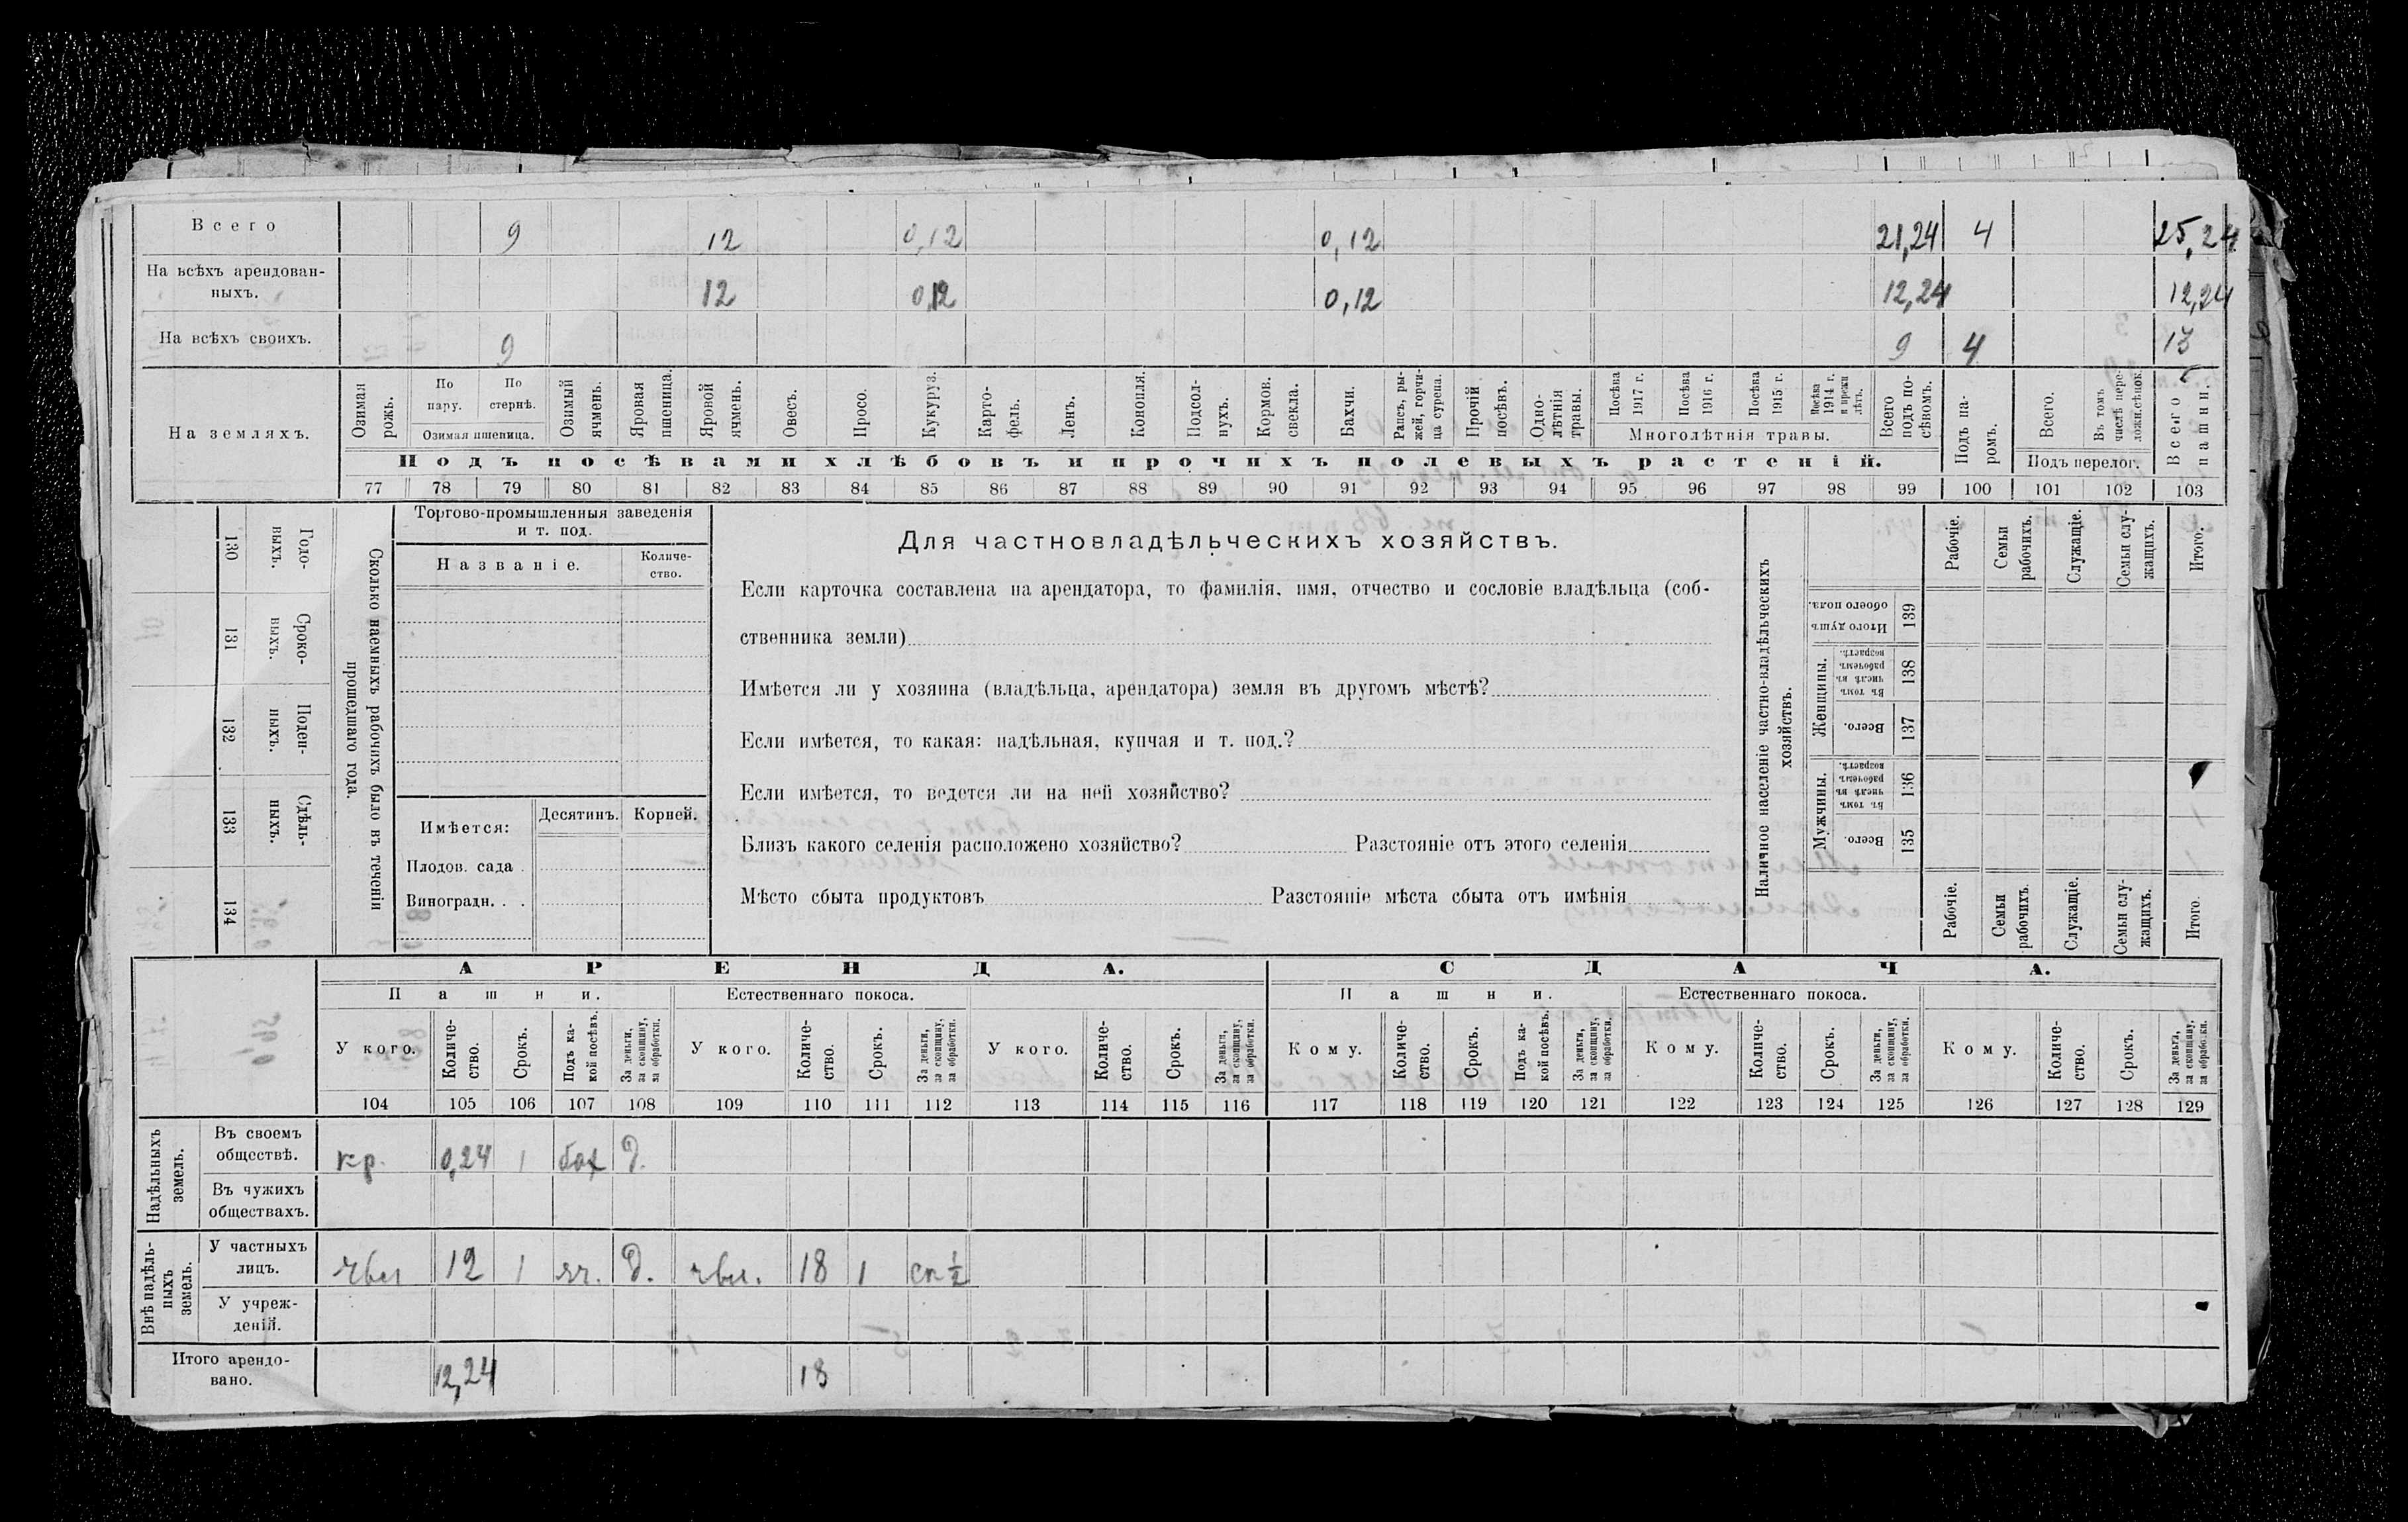 Всего 9 12 0,12 0,12 21,24 4 25,24
На всѣхъ арендован-
ныхъ. 12 0,12 0,12 12,24 12,24
На всѣхъ своихъ. 9 9 4 13
На земляхъ.
Озимая рожь.
По пару.
По стернѣ.
Озимая пшеница.
Озимый ячмень.
Яровая пшеница.
Яровой ячмень.
Овесъ.
Просо.
Кукуруз.
Карто-
фель.
Ленъ.
Конопля.
Подсол-
нухъ.
Кормов. свекла.
Бахчи.
Рапсъ, ры-
жей, горчи-
ца сурепа.
Прочій посѣвъ.
Одно-
лѣтнія травы.
Посѣва 1917 г.
Посѣва 1916 г.
Посѣва 1915 г.
Посѣва 1914 г. и прежн лѣтъ.
Многолѣтнія травы.
Всего подъ по-
сѣвомъ.
Подъ па-
ромъ.
Всего.
Въ томъ числѣ пере-
ложн.сѣнок.
Подъ перелог.
Всего пашни.
Подъ посѣвами хлѣбовъ и прочихъ полевыхъ растеній.
77 78 79 80 81 82 83 84 85 86 87 88 89 90 91 92 93 94 95 96 97 98 99 100 101 102 103
Сколько наемныхъ рабочихъ было въ теченіи
прошедшаго года.
Годо-
выхъ.
130
Сроко-
выхъ.
131
Поден-
ныхъ.
132
Сдѣль-
ныхъ.
133
134
Торгово-промышленныя заведенія
и т. под.
Названіе.
Количе-
ство.
Имѣется:
Десятинъ.
Корней.
Плодов. сада .
Виноградн. . .
Для частновладѣльческихъ хозяйствъ.
Если карточка составлена на арендатора, то фамилія, имя, отчество и сословіе владѣльца (соб-
ственника земли)
Имѣется ли у хозяина (владѣльца, арендатора) земля въ другомъ мѣстѣ?
Если имѣется, то какая: надѣльная, купчая и т. под.?
Если имѣется, то ведется ли на ней хозяйство?
Близъ какого селенія расположено хозяйство? Разстояніе отъ этого селенія
Мѣсто сбыта продуктовъ Разстояніе мѣста сбыта отъ имѣнія
Наличное населеніе частно-владѣльческихъ
хозяйствъ.
Рабочіе.
Семьи рабочихъ.
Служащіе.
Семьи слу-
жащихъ.
Итого.
Итого душъ обоего пола.
139
Женщины.
Въ томъ числѣ въ рабочемъ возрастѣ.
138
Всего.
137
Мужчины.
Въ томъ числѣ въ рабочемъ возрастѣ.
136
Всего.
135
Рабочіе.
Семьи рабочихъ.
Служащіе.
Семьи слу-
жащихъ.
Итого.
АРЕНДА. СДАЧА.
Пашни. Естественнаго покоса. Пашни. Естественнаго покоса.
У кого.
Количе-
ство.
Срокъ.
Подъ ка-
кой посѣвъ.
За деньги, за скопщину, за обработки.
У кого.
Количе-
ство.
Срокъ.
За деньги, за скопщину, за обработки.
У кого.
Количе-
ство.
Срокъ.
За деньги, за скопщину, за обработки.
Кому.
Количе-
ство.
Срокъ.
Подъ ка-
кой посѣвъ.
За деньги, за скопщину, за обработки.
Кому.
Количе-
ство.
Срокъ.
За деньги, за скопщину, за обработки.
Кому.
Количе-
ство.
Срокъ.
За деньги, за скопщину, за обработки.
104 105 106 107 108 109 110 111 112 113 114 115 116 117 118 119 120 121 122 123 124 125 126 127 128 129
Надѣльныхъ
земель.
Въ своемъ
обществѣ. кр. 0,24 1 бах д.
Въ чужихъ
обществахъ.
Внѣ надѣль-
ныхъ
земель.
У частныхъ
лицъ. чвл 12 1 яч. д. чвл. 18 1 ск ½
У учреж-
деній.
Итого арендо-
вано. 12,24 18